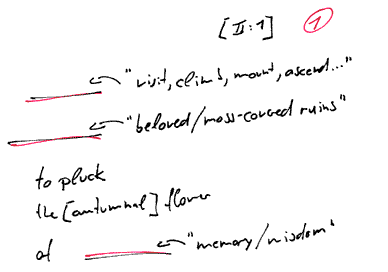 [II:1] 1
"visit, climb, mount, ascend..."
"beloved/moss-covered ruins"
to pluck
the [autumnal] flower
of "memory/wisdom"